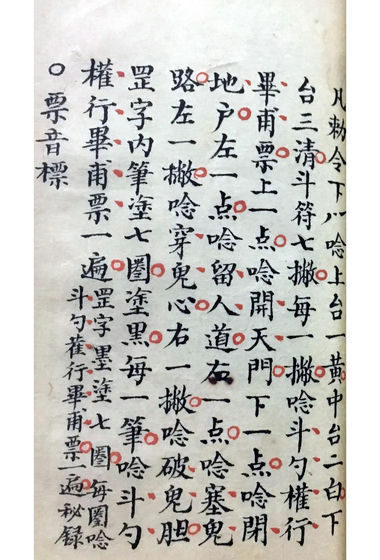 凡勅令下八唸上台一黄中台二白下
台三清斗符七撇每一撇唸斗勺權行
畢甫票上一点唸開天門下一点唸閉
地户左一点唸留人道右一点唸塞鬼
路左一撇唸穿鬼心右一撇唸破鬼胆
罡字内筆塗七圈塗黑每一筆唸斗勺
權行畢甫票一遍
罡字墨塗七圈每圈唸
斗勺權行畢甫票一遍秘録
○票音標